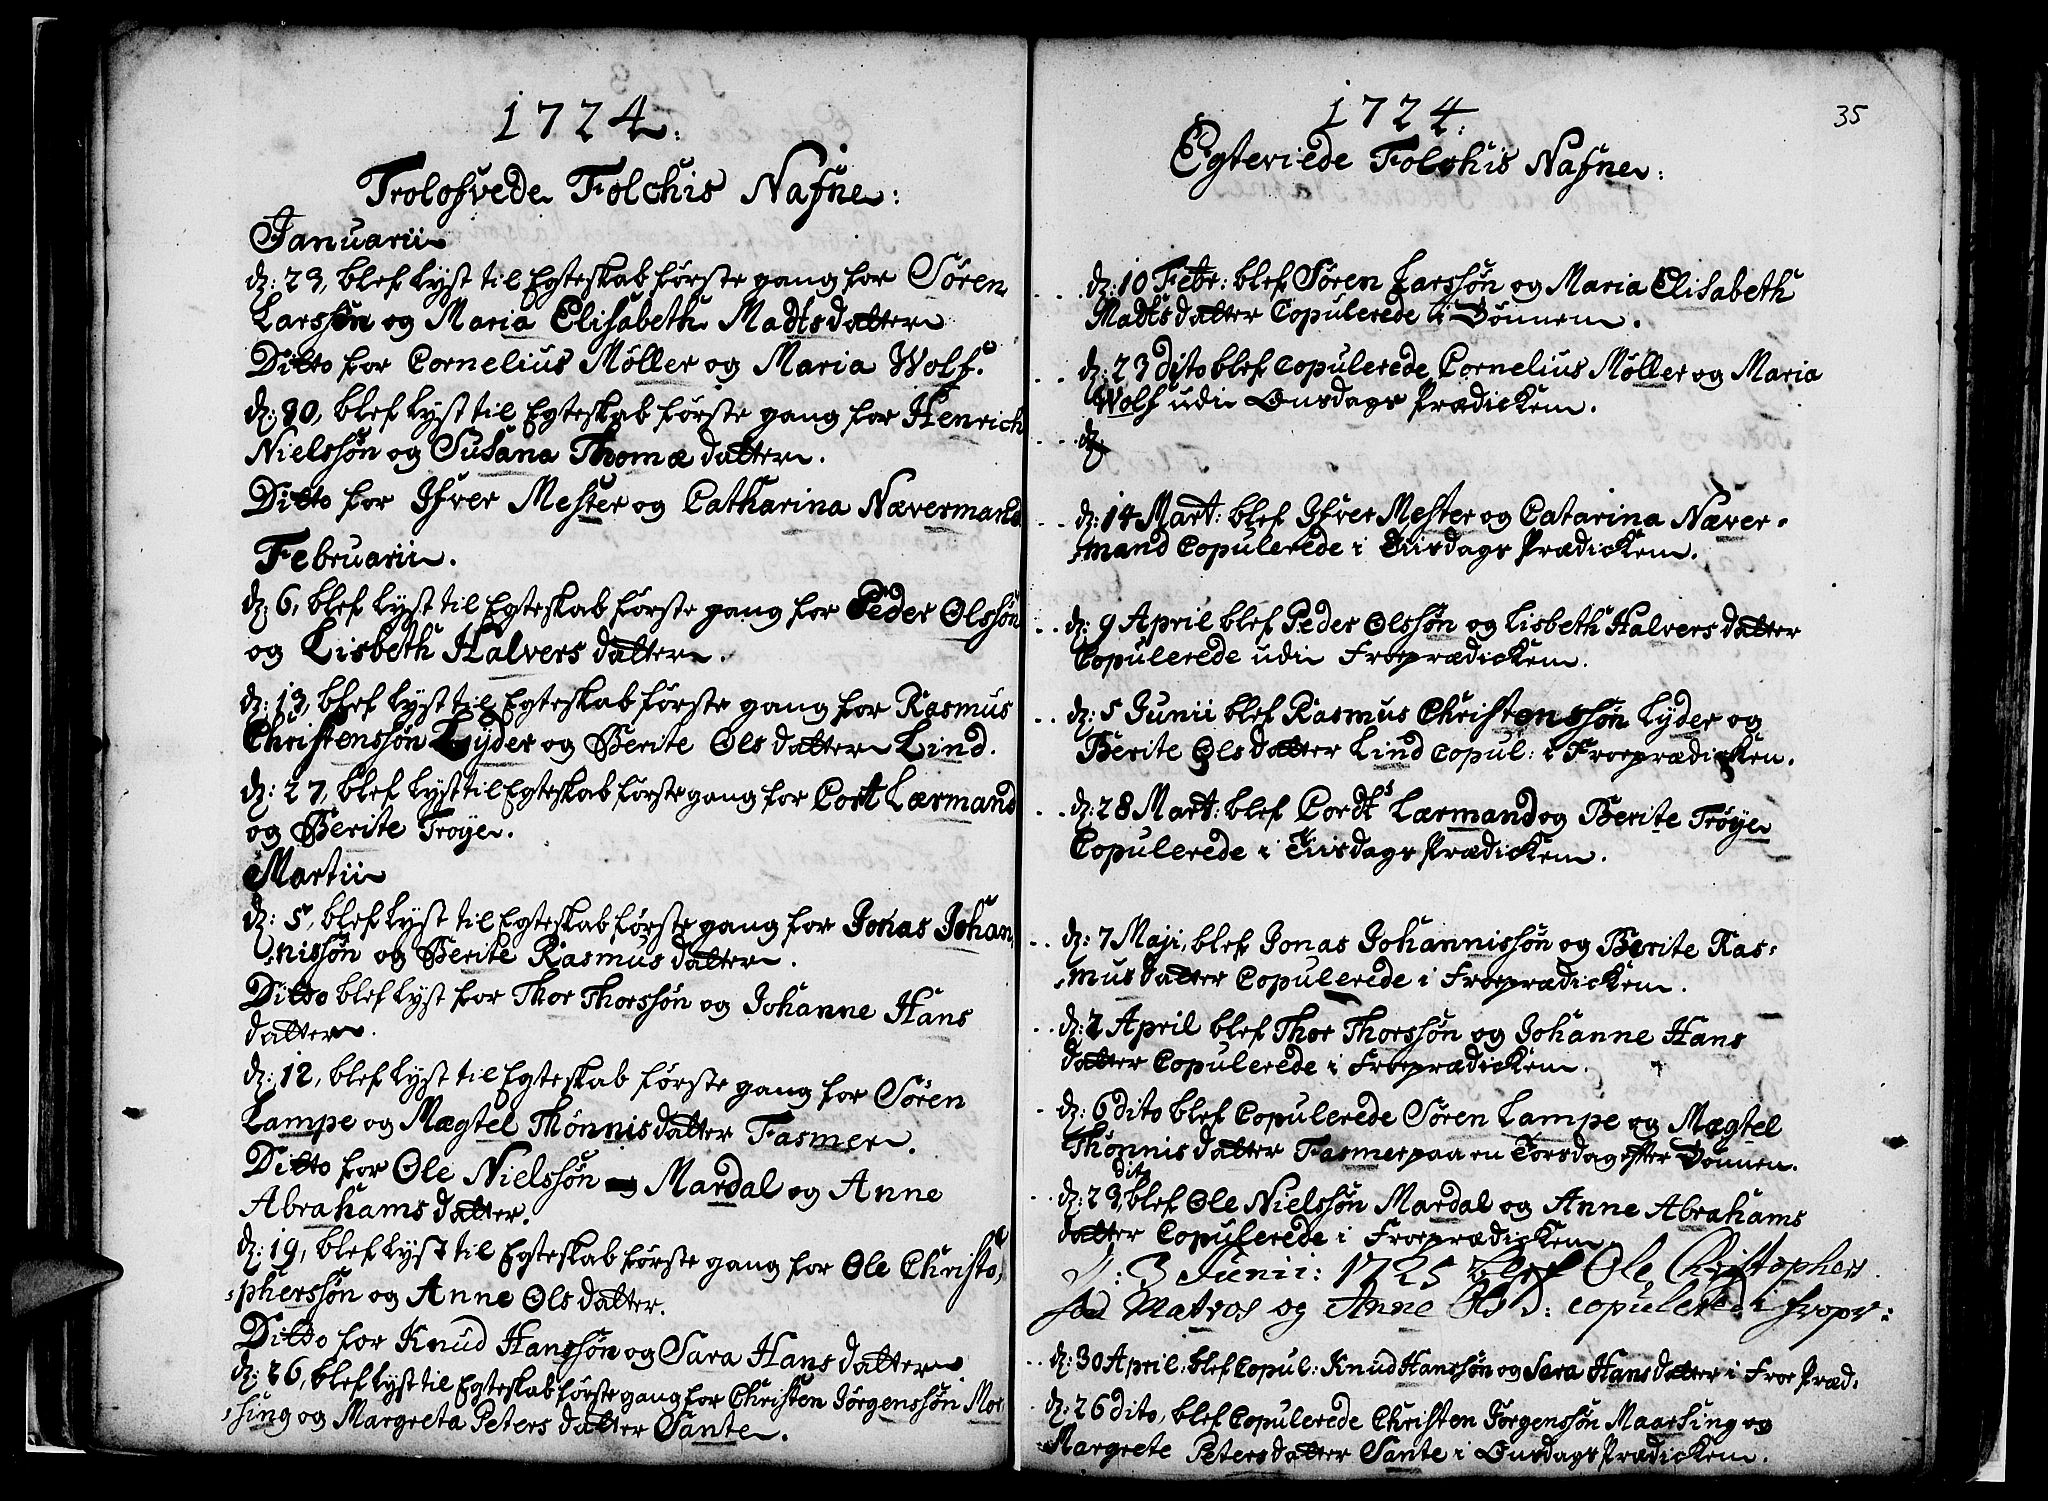 1724.
Trolofvede Folchis Nafne:
Januarii
d: 23, blef lyst til Egteskab første gang for Sören
Larssøn og Maria Elisabeth Madtsdatter
Ditto for Cornelius Møller og Maria Wolf.
d: 30, blef lyst til Egteskab første gang for Henrich
Nielssøn og Susana Thomæ datter.
Ditto for Ifver Mester og Catharina Nævermand
Februarii.
d: 6, blef lyst til Egteskab første gang for Peder Olssøn
og Lisbeth Halvers datter.
d: 13, blef lyst til Egteskab første gang for Rasmus
Christenssøn Lyder og Berite Ols datter Lind.
d: 27, blef lyst til Egteskab første gang for Cort Lærmand
og Berite Trøye.
Martii
d: 5, blef lyst til Egteskab første gang for Jonas Johan,
,nissøn og Berite Rasmus datter.
Ditto blef lyst for Thor Thorssøn og Johanne Hans
datter.
d: 12, blef lyst til Egteskab første gang for Sören
Lampe og Mægtel Thönnis datter Fasmer.
Ditto for Ole Nielssøn Mardal og Anne
Abrahams datter.
d: 19, blef lyst til Egteskab første gang for Ole Christo,
,pherssøn og Anne Ols datter.
Ditto for Knud Hanssøn og Sara Hans datter.
d: 26, blef lyst til Egteskab første gang for Christen Jørgenssøn Mor
,sing og Margreta Peters datter Sante.
35
1724.
Egteviede Folchis Nafne:
d: 10 Febr: blef Sören Larssøn og Maria Elisabeth
Madts datter Copulerede i Bönnen.
d: 23 dito blef Copulerede Cornelius Møller og Maria
Wolf udi Onsdags Prædicken.
d:
d: 14 Mart: blef Ifver Mester og Catarina Næver,
,mand Copulerede i Tiisdags Prædicken.
d: 9 April blef Peder Olssøn og Lisbeth Halvers datter
Copulerede udi Froeprædicken.
d: 5 Junii blef Rasmus Christenssøn Lyder og
Berite Ols datter Lind Copul: i Froeprædicken.
d: 28 Mart: blef Cordt Lærmand og Berite Trøye
Copulerede i Tiisdags Prædicken.
d: 7 Maji, blef Jonas Johannissøn og Berite Ras,
,mus datter Copulerede i Froeprædicken.
d: 2 April blef Thor Thorssøn og Johanne Hans
datter Copulerede i Froeprædicken.
d: 6 dito blef Copulerede Sören Lampe og Mægtel
Thönnis datter Fasmer paa en Torsdag efter Bönnen.
d: 23 dito blef Ole Nielssøn Mardal og Anne Abrahams
datter Copulerede i Froeprædicken.
d: 3 Junii: 1725 blef Ole Christophers
Matros og Anne Ols D: copulered i fropr:
d: 30 April: blef Copul: Knud Hanssøn og Sara Hans datter i Froe Præd,
d: 26 dito, blef Copulerede Christen Jørgenssøn Maarsing og
Margrete Peters datter Sante i Onsdags Prædicken.